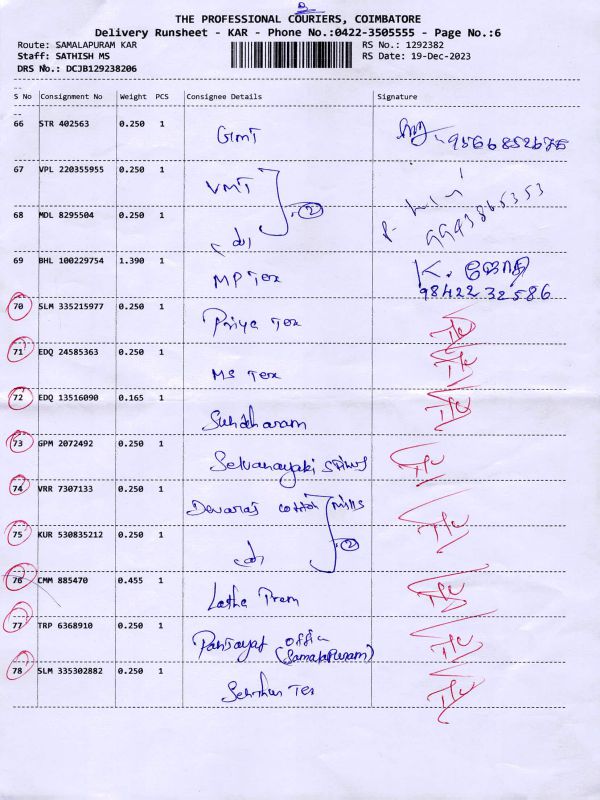 THE PROFESSIONAL COURIERS, COIMBATORE
Delivery Runsheet - KAR - Phone No.:0422-3505555 - Page No.:6
Route: SAMALAPURAM KAR RS No.: 1292382
Staff: SATHISH MS RS Date: 19-Dec-2023
DRS No.: DCJB129238206
S No Consignment No Weight PCS Consignee Details Signature
66 STR 402563 0.250 1 GTMT 9566852676
67 VPL 220355955 0.250 1 VMT
68 MDL 8295504 0.250 1 do 2 9993865353
69 BHL 100229754 1.390 1 MP Tex K. ஜோதி
9842232586
70 SLM 335215977 0.250 1 Priya Tex
71 EDQ 24585363 0.250 1 MS Tex
72 EDQ 13516090 0.165 1
73 GPM 2072492 0.250 1 Selvanayaki
74 VRR 7307133 0.250 1 Devaraj cotton mills
75 KUR 530835212 0.250 1 do 2
76 CMM 885470 0.455 1 Latha Prem
77 TRP 6368910 0.250 1 Panjayat office
(Samalapuram)
78 SLM 335302882 0.250 1 Tex